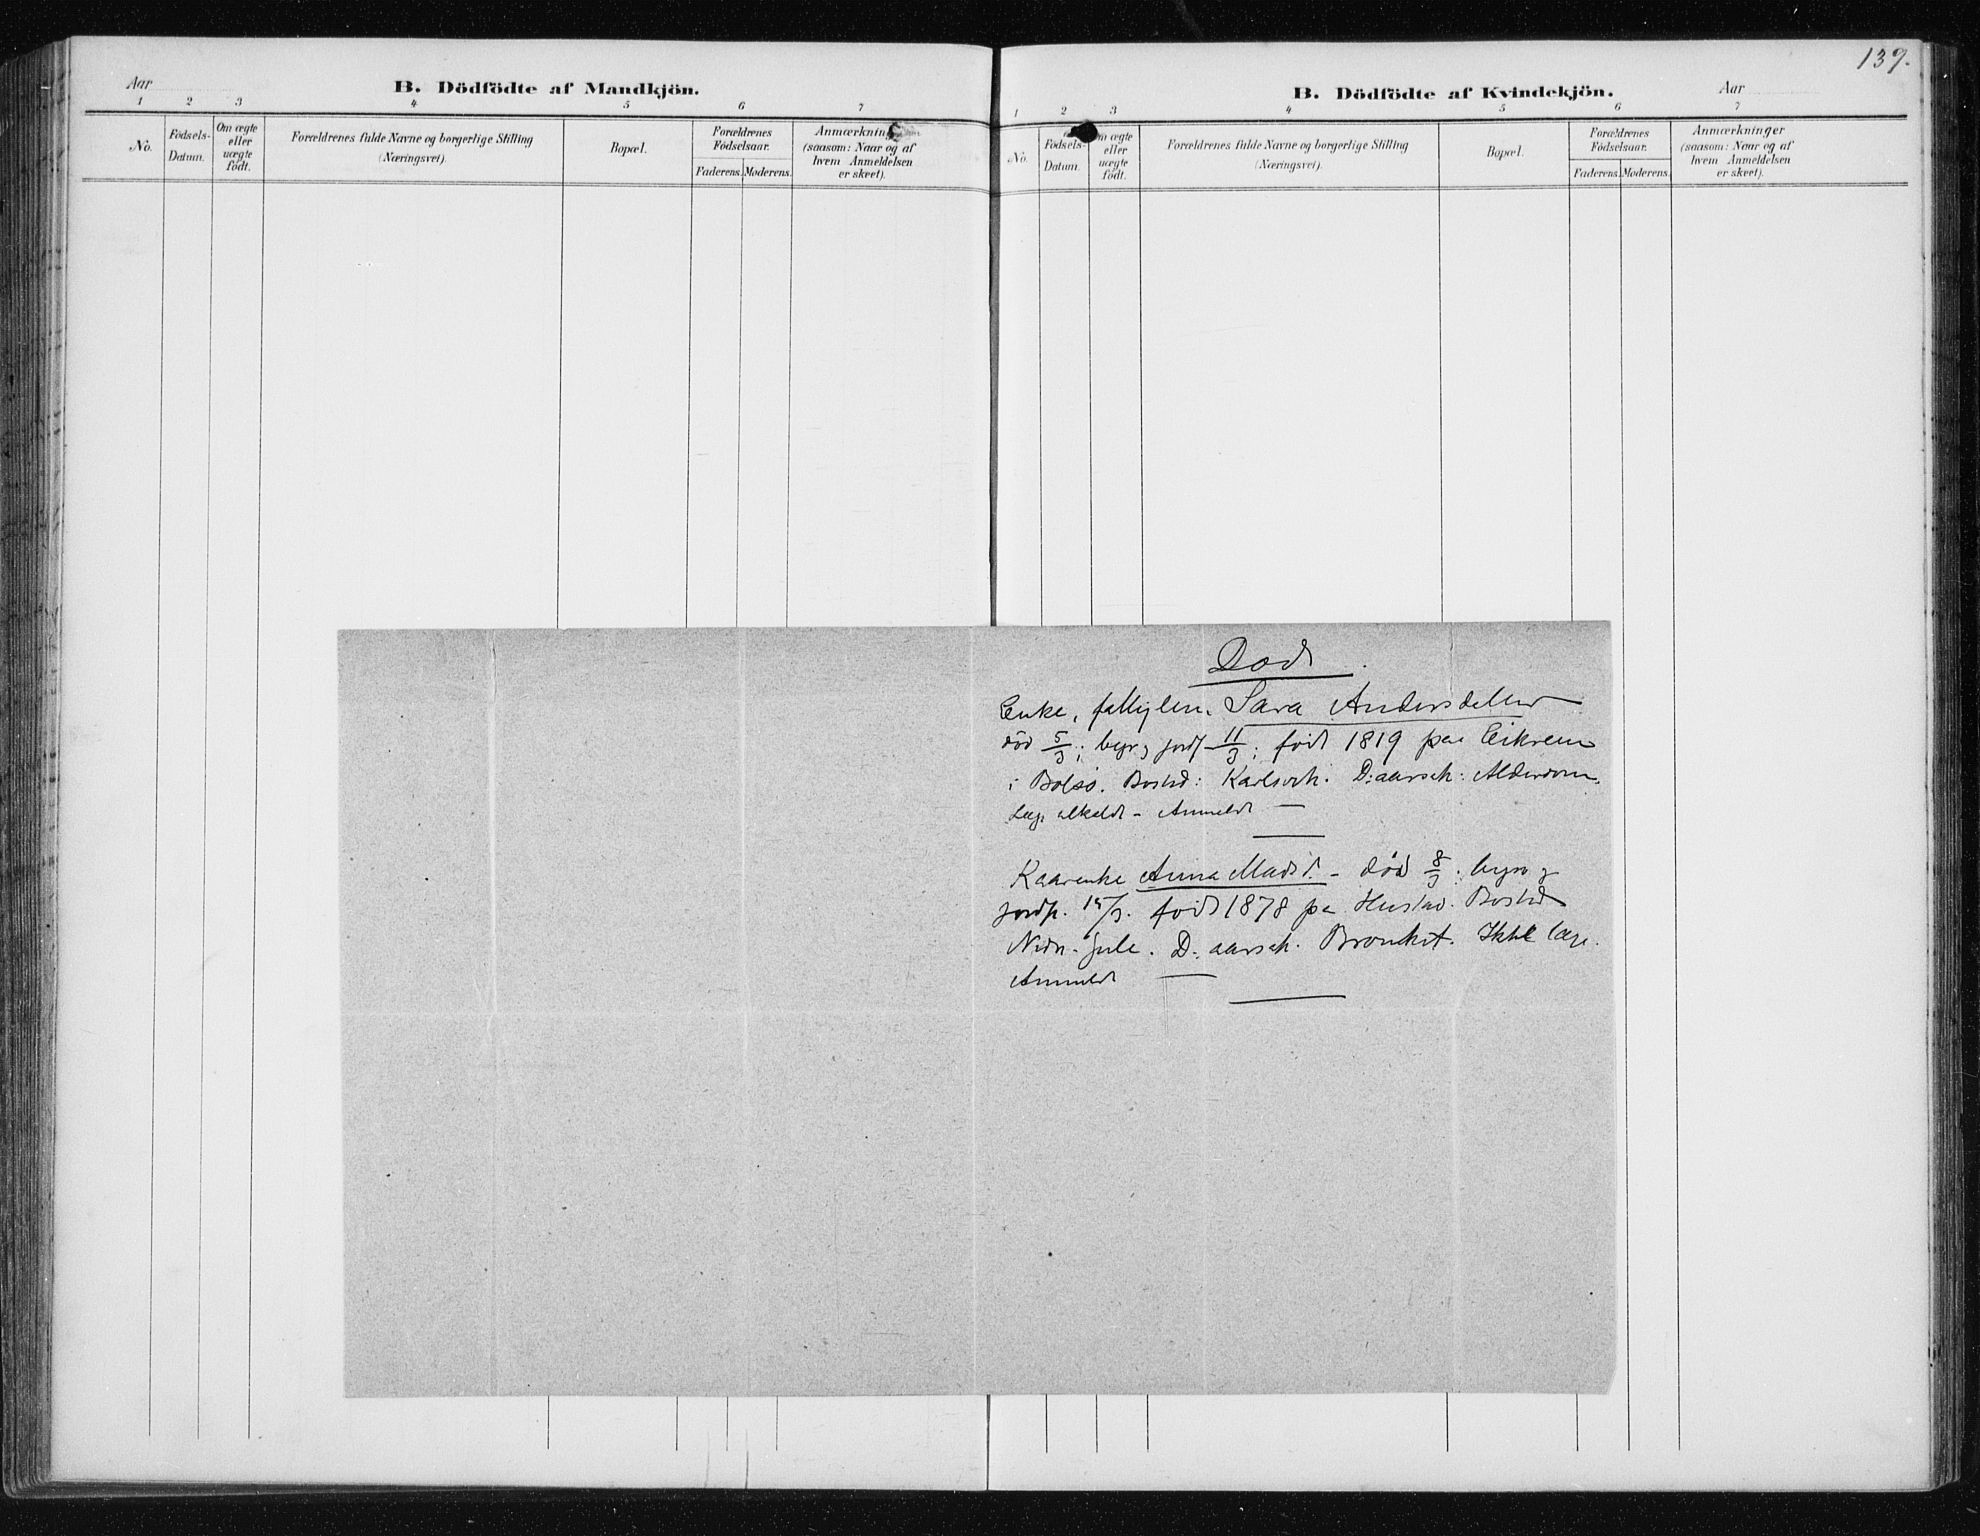 139.
Aar
B. Dödfödte af Mandkjön.
1 2 3 4 5 6 7
No.
Fødsels-
Datum.
Om ægte
eller
uægte
født.
Forældrenes fulde Navne og borgerlige Stilling
(Næringsvei).
Bopæl.
Forældrenes
Fødselsaar.
Faderens. Moderens.
Anmærkninger
(saasom: Naar og af
hvem Anmeldelsen
er skeet).
B. Dödfödte af Kvindekjön.
Aar
1 2 3 4 5 6 7
No.
Fødsels-
Datum.
Om ægte
eller
uægte
født.
Forældrenes fulde Navne og borgerlige Stilling
(Næringsvei).
Bopæl.
Forældrenes
Fødselsaar.
Faderens. Moderens.
Anmærkninger
(saasom: Naar og af
hvem Anmeldelsen
er skeet).
Død
Enke, Sara Andersdatter
død 5/3; begr. jordf. 11/3; født 1819 paa Eikrem
i Bolsø. Bosted: D: aarsak: Alderdom.
Læge Anmeldt —
Kaarenke Anna Madsd. - død 8/3.
jordf. 15/3. født 1878 pa Hustad. Bosted
D: aarsak. Bronkit. Ikke læge.
Anmeldt —